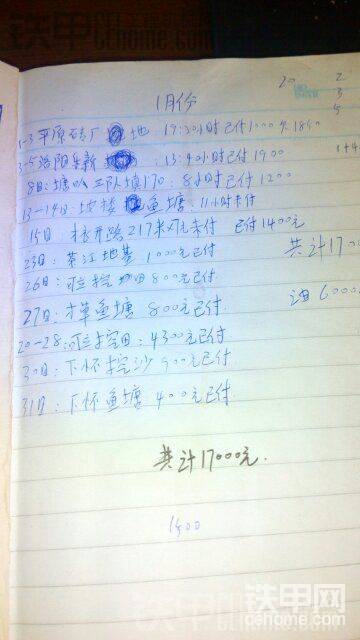 铁甲网
cehome.com
1月份
20
2
3
5
1-3平原砖厂 地 19:30小时已付1000欠1850
3-5洛阳 新 : 13:40小时已付1900
1+4
8日:塘 三队填170:8小时已付1200
13-14日: 楼 鱼塘:11小时未付
15日 开路217米 未付 已付1400元
共计1700
23日: 江地基1000元已付
26日: 挖 田800元已付
油6000
27日: 草鱼塘 800元已付
20-28: 挖田:4300元已付
30日:下怀挖沙900元已付
31日:下怀鱼塘 400元已付
共计17000元.
1500
铁甲网
cehome.com